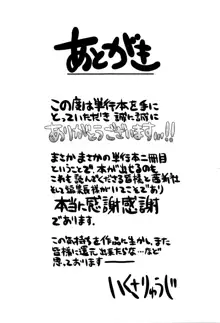 あとがき
この度は単行本を手に
とっていただき 誠に誠に
ありがとうございますッ!!
まさかまさかの単行本二冊目
ということで、本が出じるのも
これを 読んでくださる皆様と
そして編集長様がいてこそであり
本当に感謝感謝
であります。
この気持ちを作品に生かし、また
皆様に還元出来たらな…など
思っております――
いくさりゅうじ